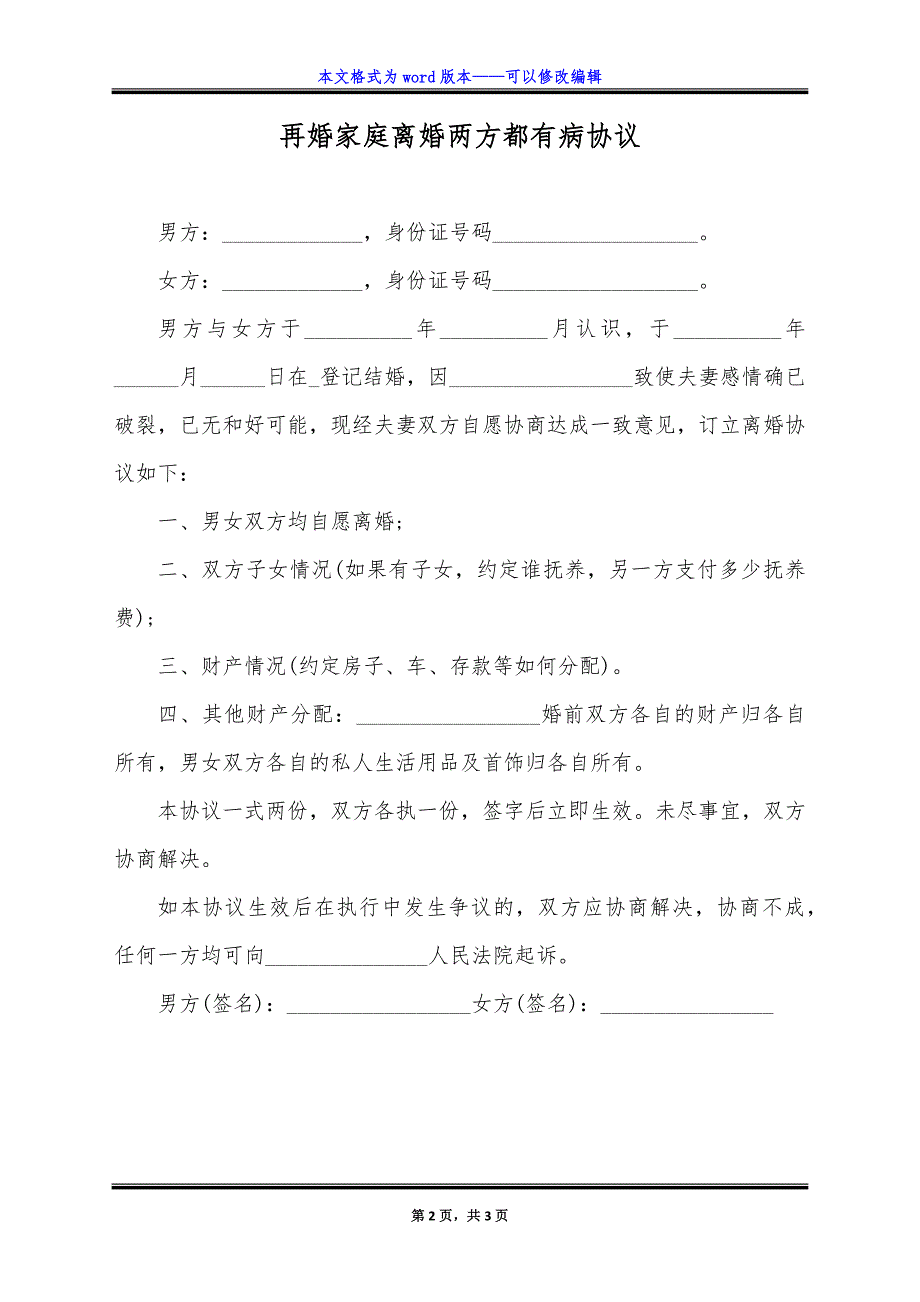 本文格式为 word 版本——可以修改编辑
再婚家庭离婚两方都有病协议
男方：_____________，身份证号码___________________。
女方：_____________，身份证号码___________________。
男方与女方于__________年__________月认识，于__________年
______月______日在_登记结婚，因_________________致使夫妻感情确已
破裂，已无和好可能，现经夫妻双方自愿协商达成一致意见，订立离婚协
议如下：
一、男女双方均自愿离婚;
二、双方子女情况(如果有子女，约定谁抚养，另一方支付多少抚养
费);
三、财产情况(约定房子、车、存款等如何分配)。
四、其他财产分配：_________________婚前双方各自的财产归各自
所有，男女双方各自的私人生活用品及首饰归各自所有。
本协议一式两份，双方各执一份，签字后立即生效。未尽事宜，双方
协商解决。
如本协议生效后在执行中发生争议的，双方应协商解决，协商不成，
任何一方均可向_______________人民法院起诉。
男方(签名)：_________________女方(签名)：________________
第 2 页，共 3 页